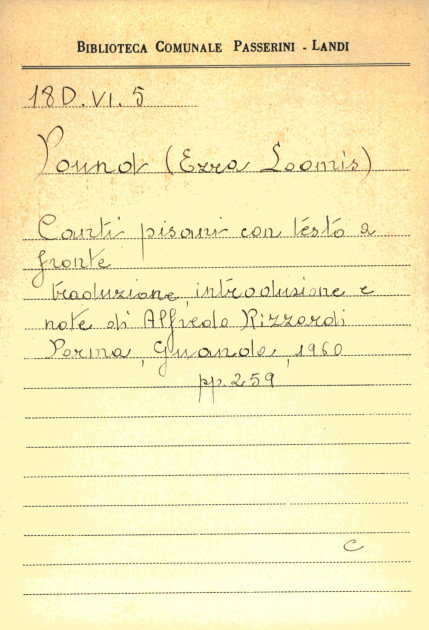 BIBLIOTECA COMUNALE PASSERINI - LANDI
18D.VI.5
Pound (Ezra Loomis)
Canti pisani con testo a
fronte
traduzione, introduzione e
note di Alfredo Rizzardi
Parma, Guanda, 1960
pp. 259
C